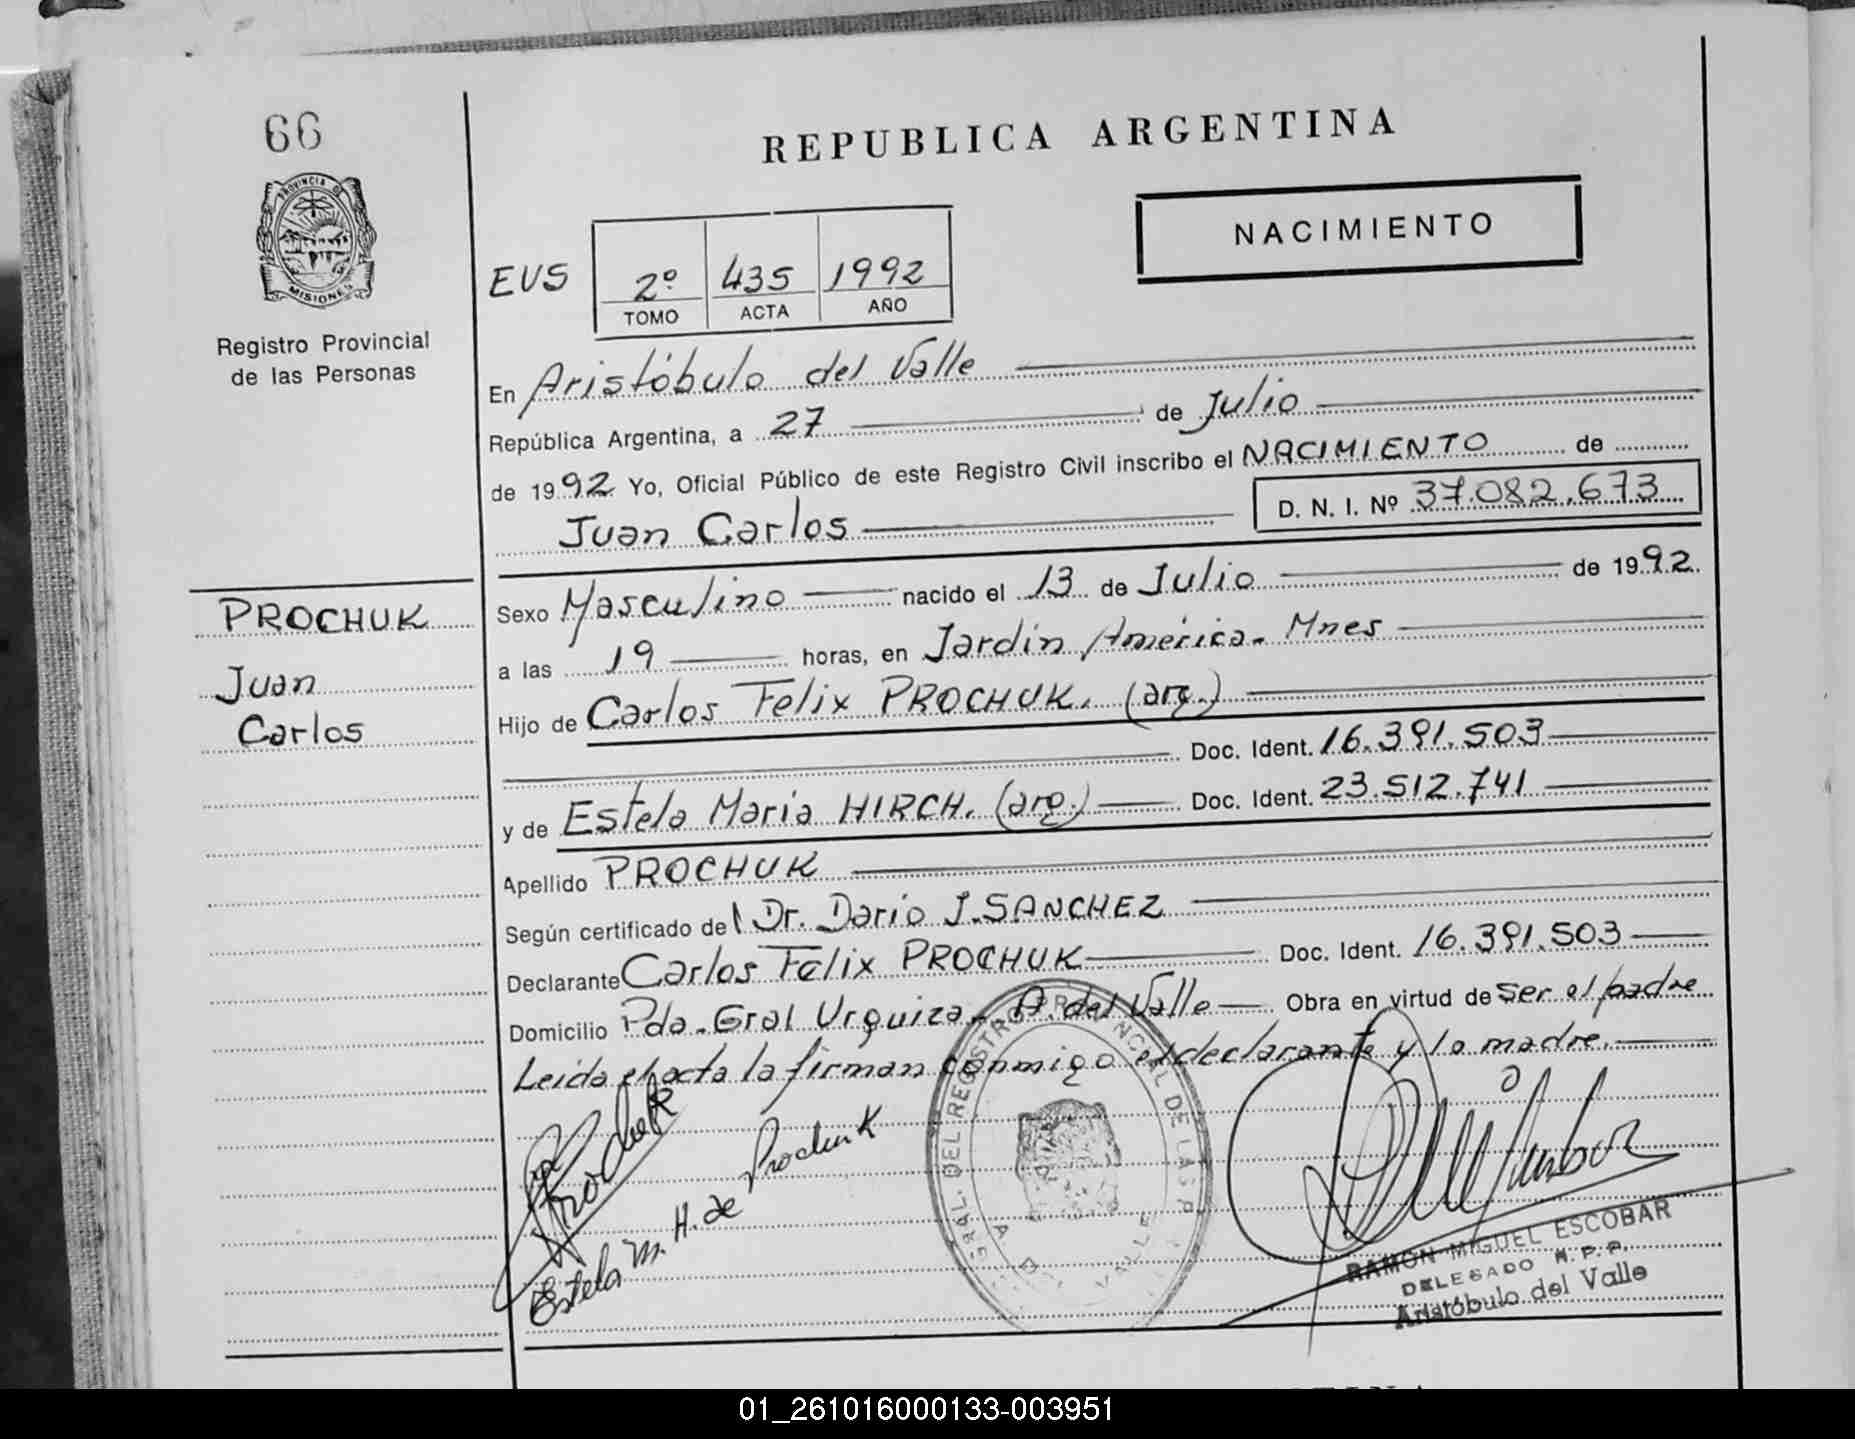 66
REPUBLICA ARGENTINA
PROVINCIA DE
MISIONES
Registro Provincial
de las Personas
NACIMIENTO
EVS
2º 435 1992
TOMO ACTA AÑO
En Aristóbulo del Valle
República Argentina, a 27 de Julio
de 1992. Yo, Oficial Público de este Registro Civil inscribo el NACIMIENTO de
Juan Carlos D. N. I. Nº 37.082.673
PROCHUK
Juan
Carlos
Sexo Masculino nacido el 13 de Julio de 1992.
a las 19 horas, en Jardín América. Mnes
Hijo de Carlos Felix PROCHUK. (arg.)
Doc. Ident. 16.391.503
y de Estela Maria HIRCH. (arg.) Doc. Ident. 23.512.741
Apellido PROCHUK
Según certificado del Dr. Dario J. SANCHEZ
Declarante Carlos Félix PROCHUK Doc. Ident. 16.391.503
Domicilio Pda. Gral Urquiza. A. del Valle Obra en virtud de ser el padre
Leida el acta la firman conmigo el declarante y la madre.
Prochuk
Estela M. H. de Prochuk
GRAL. DEL REGISTRO PROVINCIAL DE LAS P
A. DEL VALLE
RAMON MIGUEL ESCOBAR
DELEGADO R. P. P.
Aristóbulo del Valle
01_261016000133-003951